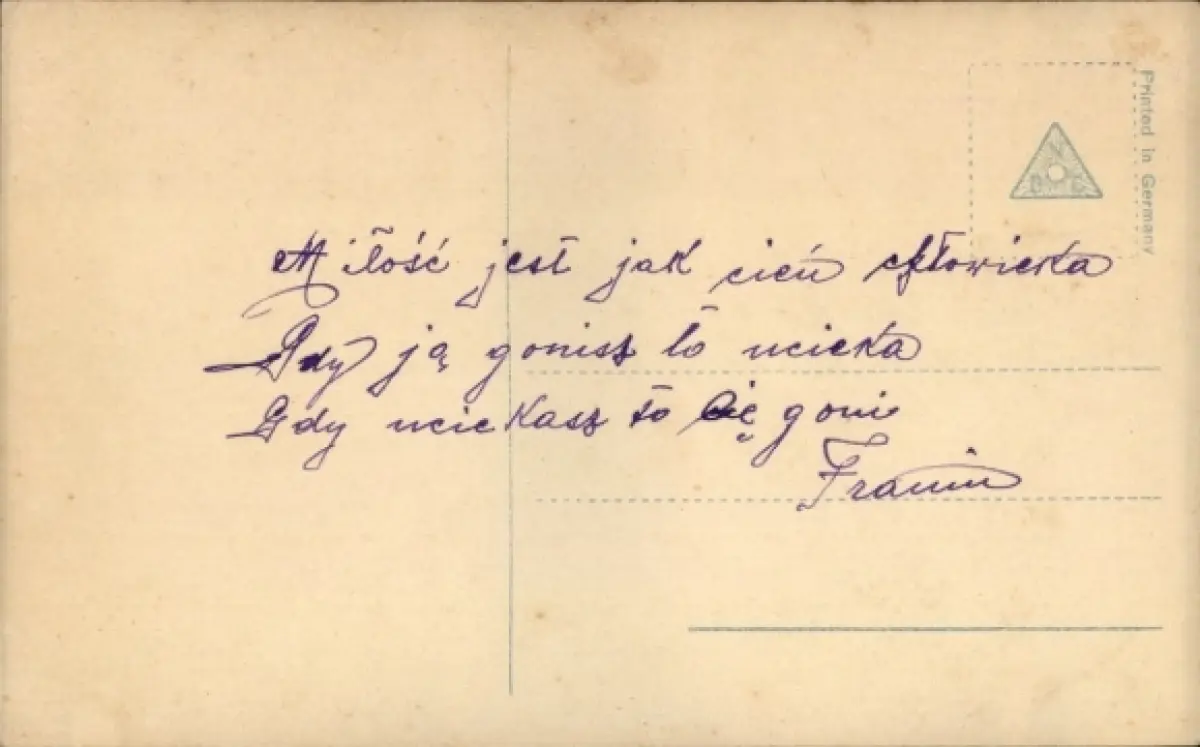 Miłość jest jak cień człowieka
Gdy ją gonisz to ucieka
Gdy uciekasz to cię goni
Printed in Germany
N
B G